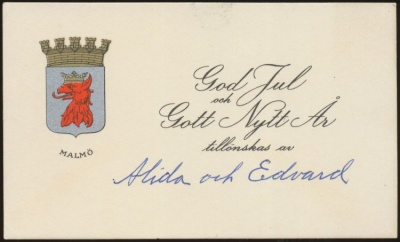 God Jul
och
Gott Nytt År
tillönskas av
Alida och Edvard
MALMÖ